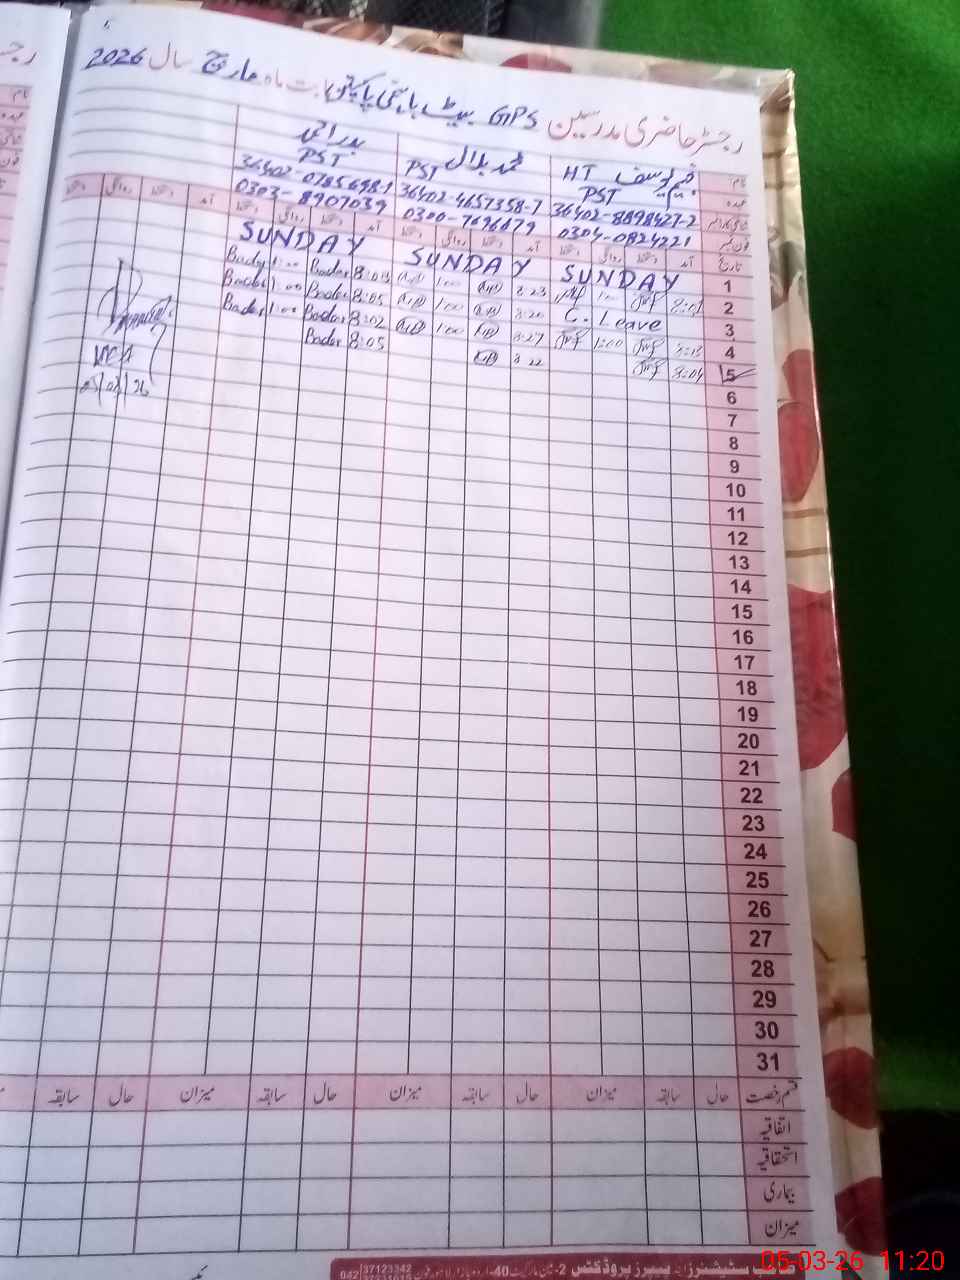 رجسٹر حاضری مدرسین GPS بابت ماہ مارچ سال 2026
نام
عہدہ
فون نمبر
تاریخ
HT
PST
36402-8898427-2
0304-0824221
محمد بلال
PST
36402-4657358-7
0300-7696479
PST
36402-0785698-1
0303-8907039
آمد دستخط روانگی دستخط آمد دستخط روانگی دستخط آمد دستخط روانگی دستخط آمد دستخط روانگی دستخط
1 SUNDAY SUNDAY SUNDAY
2 8:01 8:23 1:00 8:03 Badar 1:00 Badar
3 C. Leave 8:20 1:00 8:05 Badar 1:00 Badar
4 8:13 1:00 8:27 1:00 8:02 Badar 1:00 Badar
5 8:04 8:22 8:05 Badar
05/03/26
6
7
8
9
10
11
12
13
14
15
16
17
18
19
20
21
22
23
24
25
26
27
28
29
30
31
قسم رخصت حال سابقہ میزان حال سابقہ میزان حال سابقہ میزان حال سابقہ
اتفاقیہ
استحقاقیہ
بیماری
میزان
سٹیشنرز اینڈ پیپرز پروڈکٹس
37123342
042
05-03-26 11:20